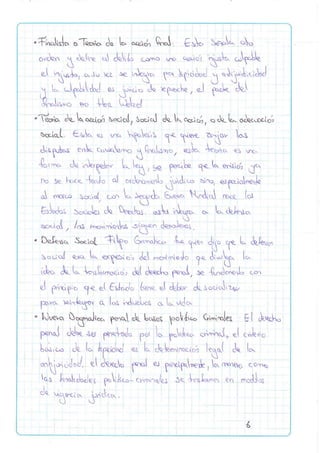 • Finalista o Teoría de la acción final. Esto señala otro
orden y define al delito como una acción injusta culpable
el injusto, a su vez se integra por tipicidad y antijuridicidad
y la culpabilidad es juicio de reproche, el
finalismo no
• Teoría de la acción social, social de la acción, o de la adecuación
social. Esta es una hipótesis que quiere zanjar las
disputas entre causalismo y finalismo, esta teoría es una
forma de interpretar la ley, se percibe que la omisión ya
no se hace todo al ordenamiento jurídico sino, especialmente
al marco social, con la Segunda Guerra Mundial nace los
Estados Sociales de Derechos. esta integra a la defensa
social, los movimientos siguen
• Defensa Social Filipo Gramatica fue quien dijo que la defensa
social era la expresión del movimiento que divulga la
idea de la transformación del derecho penal, se fundamenta con
el principio que el Estado tiene el deber de socializar
para reintegrar a los individuos a la vida.
• Nueva Dogmática penal de bases político Criminales El derecho
penal debe ser penetrado por la política criminal, el criterio
básico de la tipicidad es la determinación legal de la
antijuricidad, el derecho penal es principalmente, la manera como
las finalidades político-criminales se trasforman en modos
de vigencia jurídica.
6